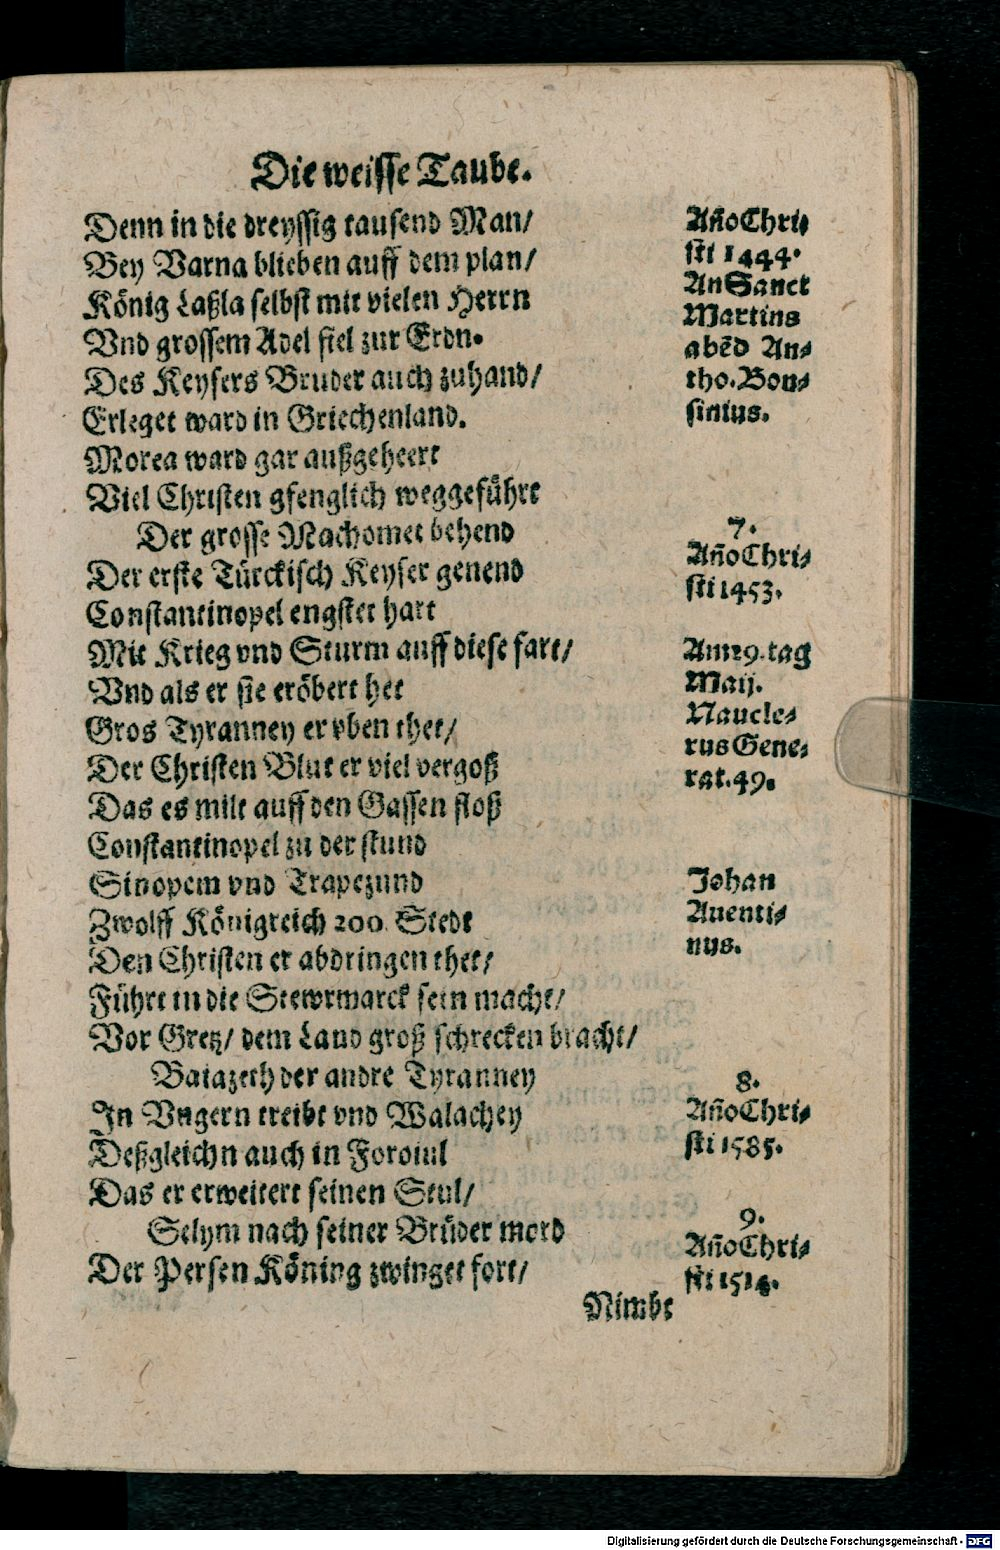 Die weisse Taube.
Denn in die dreyssig tausend Man/
Bey Varna blieben auff dem plan/
König Laßla selbst mit vielen Herrn
Vnd grossem Adel fiel zur Erdn.
Des Keysers Bruder auch zuhand/
Erleget ward in Griechenland.
Morea ward gar außgeheert
Viel Christen gfenglich weggeführt
Der grosse Machomet behend
Der erste Türckisch Keyser genend
Constantinopel engstet hart
Mit Krieg vnd Sturm auff diese fart/
Vnd als er sie eröbert het
Gros Tyranney er vben thet/
Der Christen Blut er viel vergoß
Das es milt auff den Gassen floß
Constantinopel zu der stund
Sinopem vnd Trapezund
Zwolff Königreich 200. Stedt
Den Christen er abdringen thet/
Führt in die Stewrmarck sein macht/
Vor Gretz/ dem Land groß schrecken bracht/
Baiazeth der andre Tyranney
In Vngern treibt vnd Walachey
Deßgleichn auch in Foroiul
Das er erweitert seinen Stul/
Selym nach seiner Brüder mord
Der Persen Köning zwinget fort/
Nimbt
Añο Chri⸗
sti 1444.
An Sanct
Martins
abẽd An⸗
tho. Bon⸗
sinius.
7.
Año Chri⸗
sti 1453.
Am 29. tag
Maij.
Naucle⸗
rus Gene⸗
rat. 49.
Johan
Auenti⸗
nus.
8.
Año Chri⸗
sti 1585.
9.
Año Chri⸗
sti 1514.
Digitalisierung gefördert durch die Deutsche Forschungsgemeinschaft - DFG